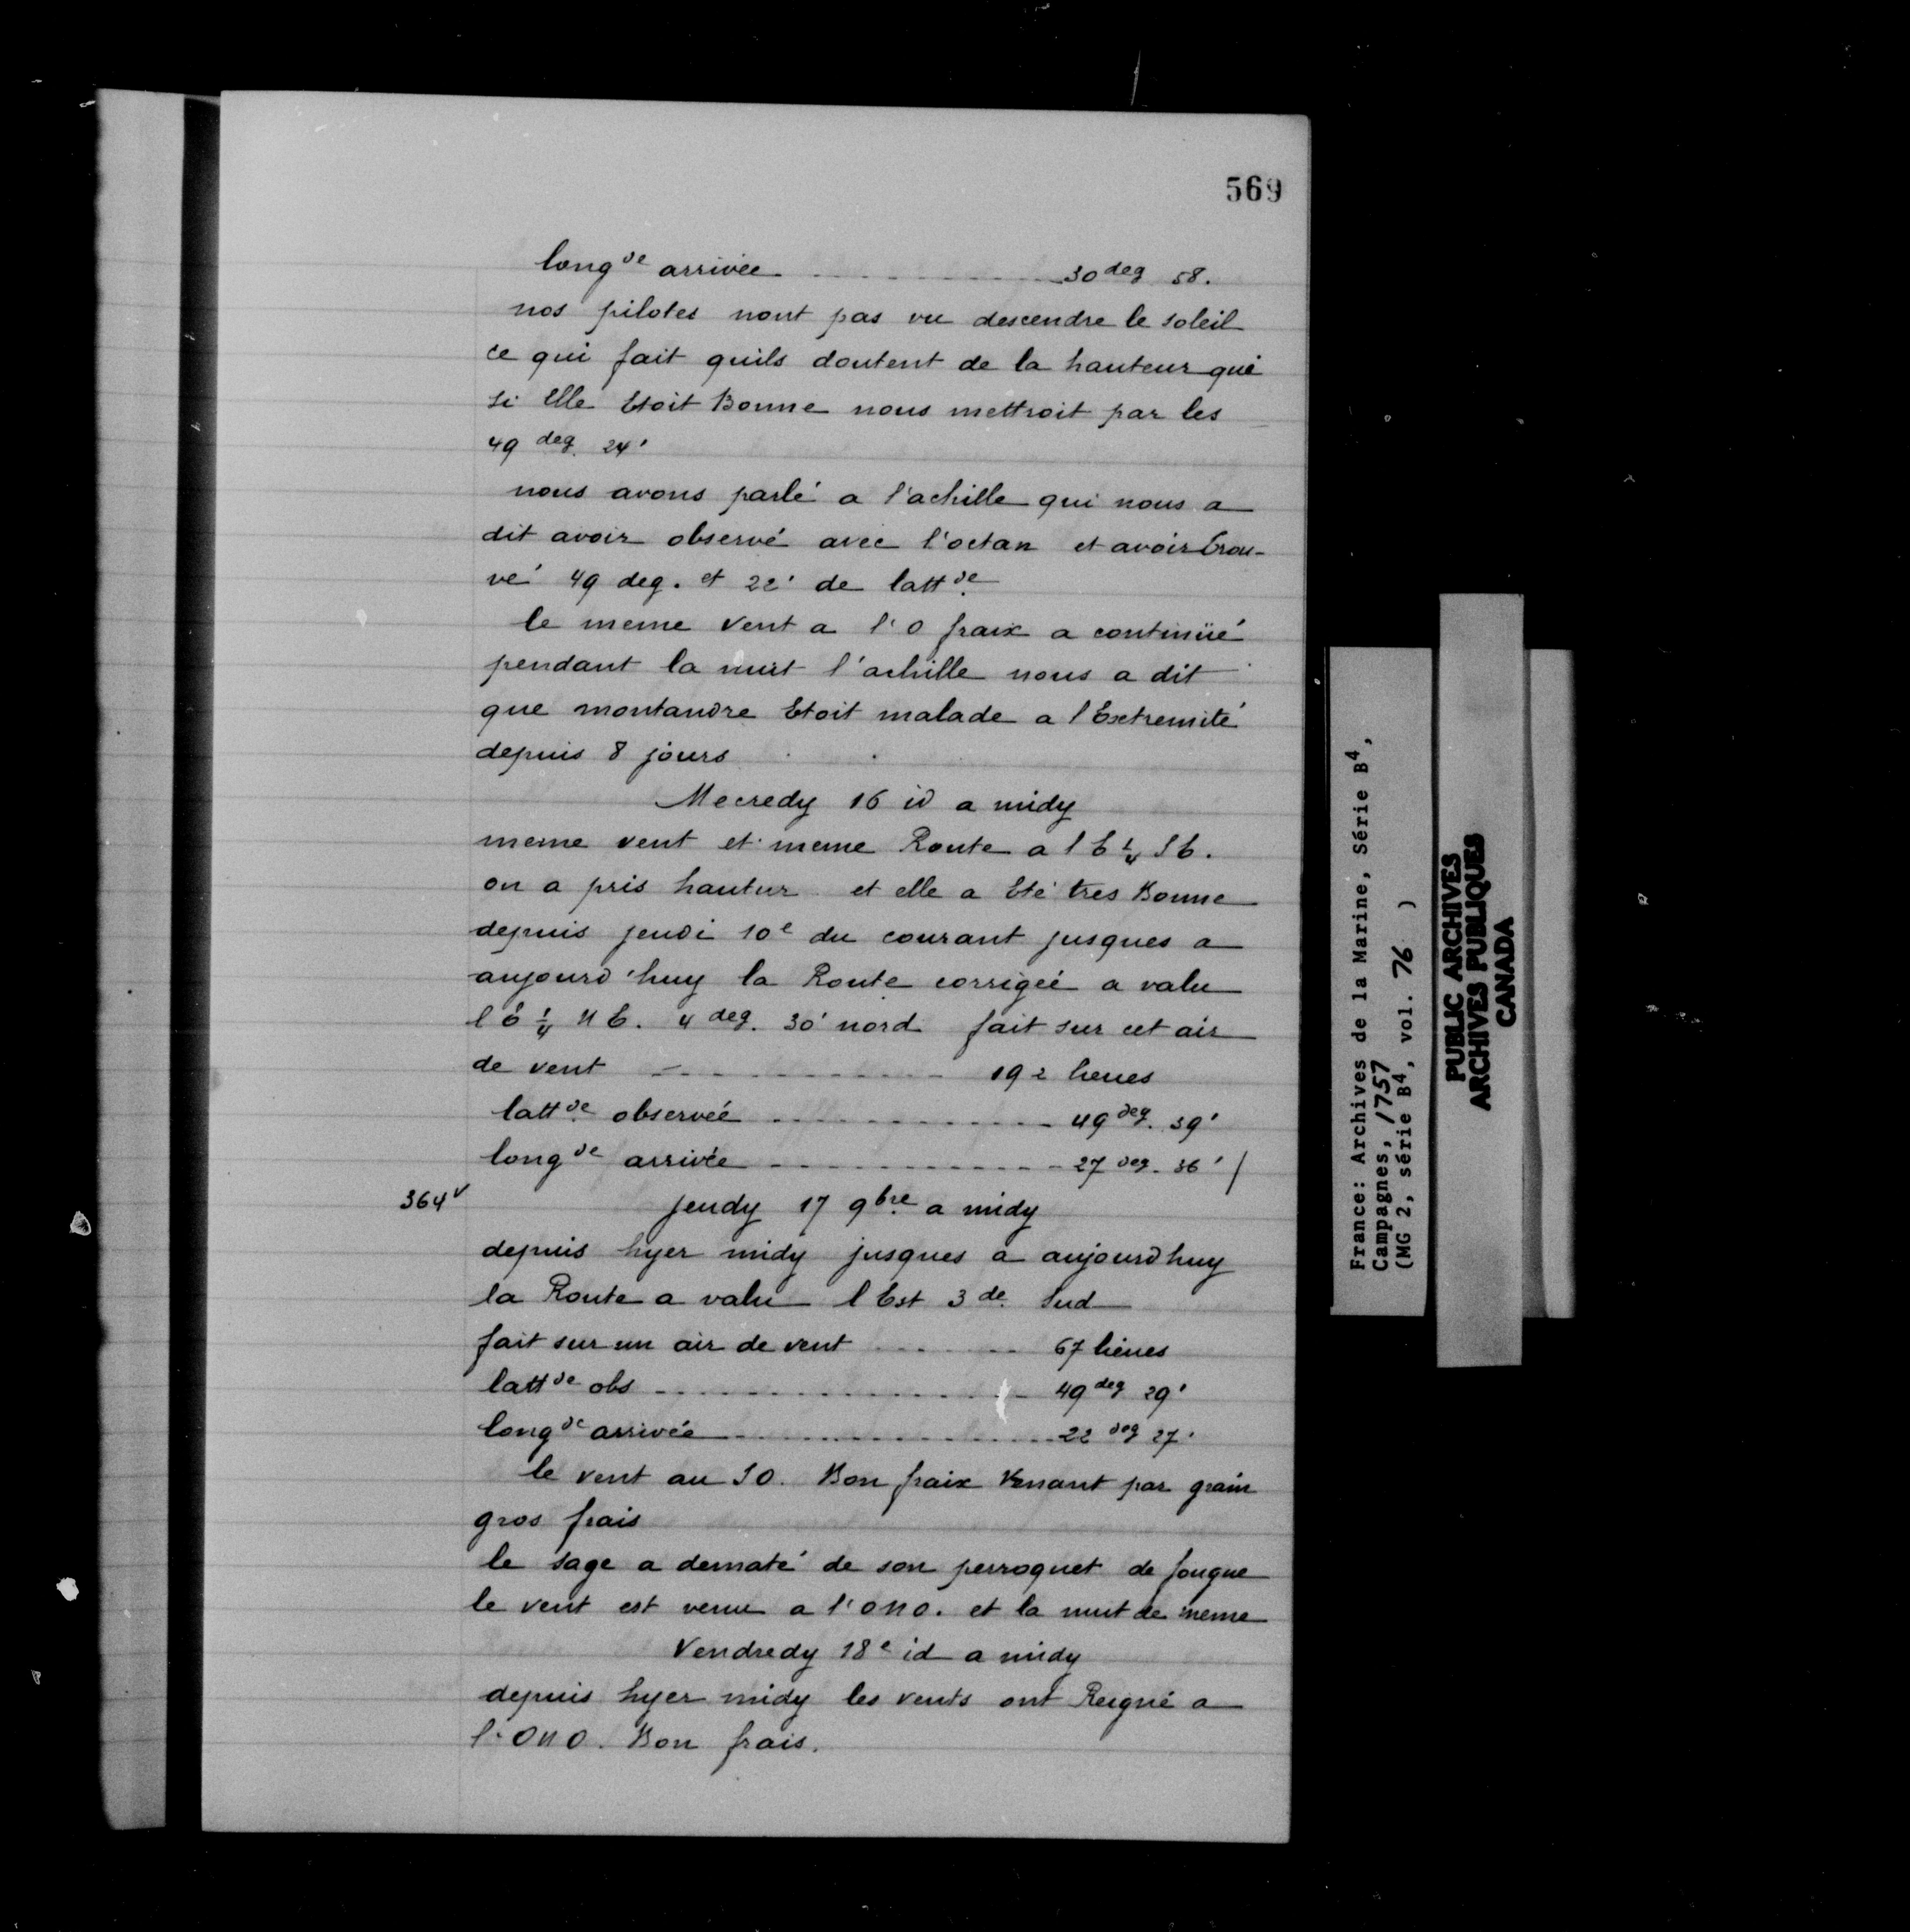 569
longde arrivée ............ 30 deg 58.
nos pilotes nont pas vu descendre le soleil
ce qui fait quils doutent de la hauteur qui
si Elle Etoit Bonne nous mettroit par les
49 deg. 24'
nous avons parlé a l'achille qui nous a
dit avoir observé avec l'octan et avoir trou-
vé 49 deg. et 22' de lattde.
le meme vent a l'O fraix a continüé
pendant la nuit l'achille nous a dit
que montandre Etoit malade a l'Extremité
depuis 8 jours
Mecredy 16 id a midy
meme vent et meme Route a l E 1/4 SE.
on a pris hautur et elle a Eté tres Bonne
depuis jeudi 10e du courant jusques a
aujourd'huy la Route corrigéé a valu
l'E 1/4 NE. 4 deg. 30' nord fait sur cet air
de vent ............ 192 lieues
lattde. observéé ............ 49 deg. 39'
longde arrivée ............ 27 deg. 36' /
364v
jeudy 17 9bre a midy
depuis hyer midy jusques a aujourdhuy
la Route a valu l Est 3 de. Sud
fait sur un air de vent ....... 67 lieues
lattde obs ............ 49 deg 29'
longde arrivée ............ 22 deg 27'
le vent au SO. Bon fraix Venant par grain
gros frais
le sage a dematé de son perroquet de fougue
le vent est venu a l'ONO. et la nuit de meme
Vendredy 18e id a midy
depuis hyer midy les vents ont Reigné a
l'ONO. Bon frais.
France: Archives de la Marine, Série B4,
Campagnes, 1757
(MG 2, série B4, vol. 76 )
PUBLIC ARCHIVES
ARCHIVES PUBLIQUES
CANADA